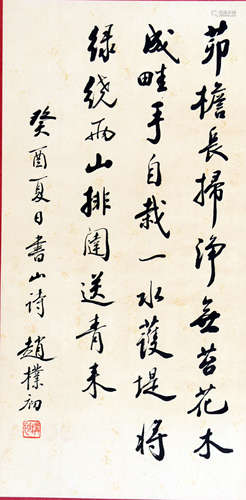 茆檐長掃淨無苔花木
成畦手自栽一水護堤將
绿繞两山排闥送青来
癸酉夏日書山诗 趙樸初